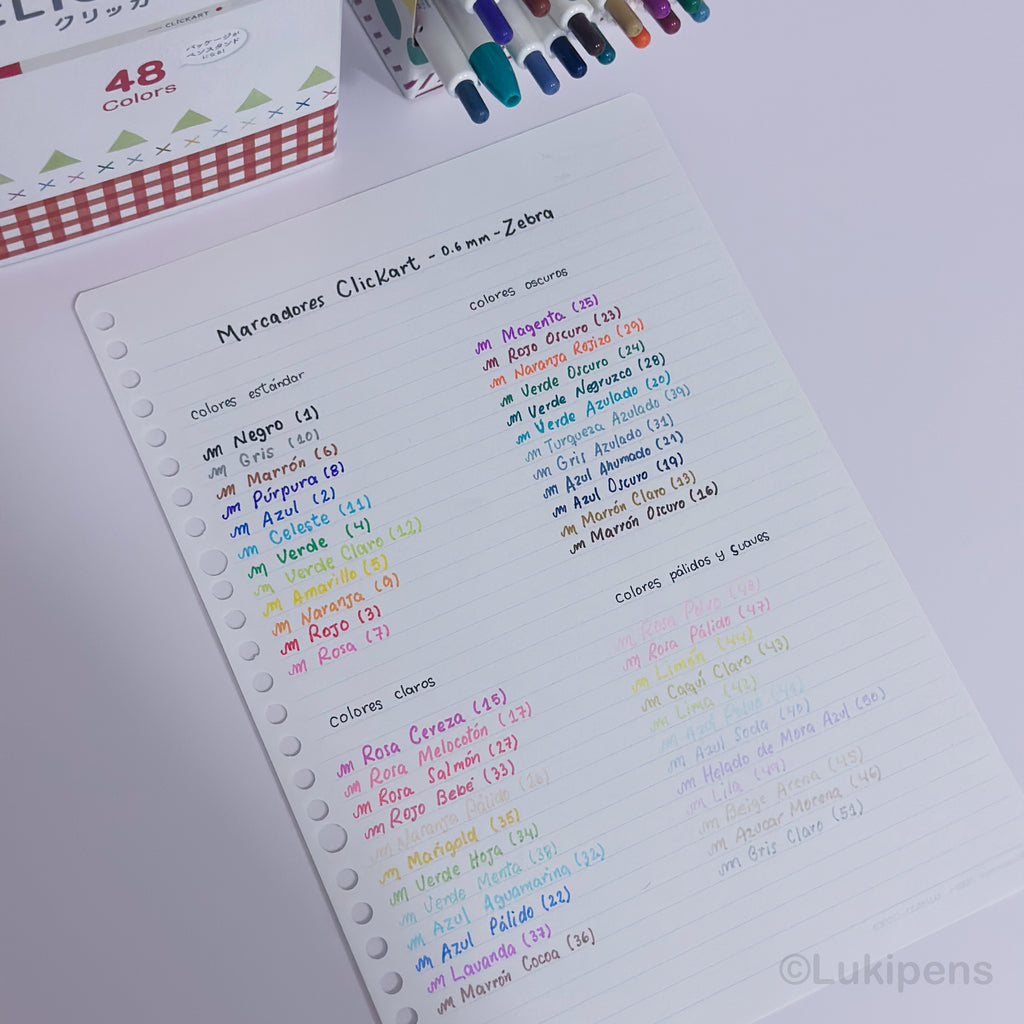 クリッカ
CLICKART
パッケージが
ペンスタンド
になる!
48
Colors
Marcadores Clickart - 0.6 mm - Zebra
colores estándar
Negro (1)
Gris (10)
Marrón (6)
Púrpura (8)
Azul (2)
Celeste (11)
Verde (4)
Verde Claro (12)
Amarillo (5)
Naranja (9)
Rojo (3)
Rosa (7)
colores oscuros
Magenta (25)
Rojo Oscuro (23)
Naranja Rojizo (29)
Verde Oscuro (24)
Verde Negruzco (28)
Verde Azulado (20)
Turqueza Azulado (39)
Gris Azulado (31)
Azul Ahumado (21)
Azul Oscuro (19)
Marrón Claro (13)
Marrón Oscuro (16)
colores claros
Rosa Cereza (15)
Rosa Melocotón (17)
Rosa Salmón (27)
Rojo Bebé (33)
Naranja Pálido (18)
Marigold (35)
Verde Hoja (34)
Verde Menta (38)
Azul Aguamarina (32)
Azul Pálido (22)
Lavanda (37)
Marrón Cocoa (36)
colores pálidos y suaves
Rosa Polvo (48)
Rosa Pálido (47)
Limón (44)
Caqui Claro (43)
Lima (42)
Azul Polvo (41)
Azul Soda (40)
Helado de Mora Azul (50)
Lila (49)
Beige Arena (45)
Azucar Morena (46)
Gris Claro (51)
©Lukipens